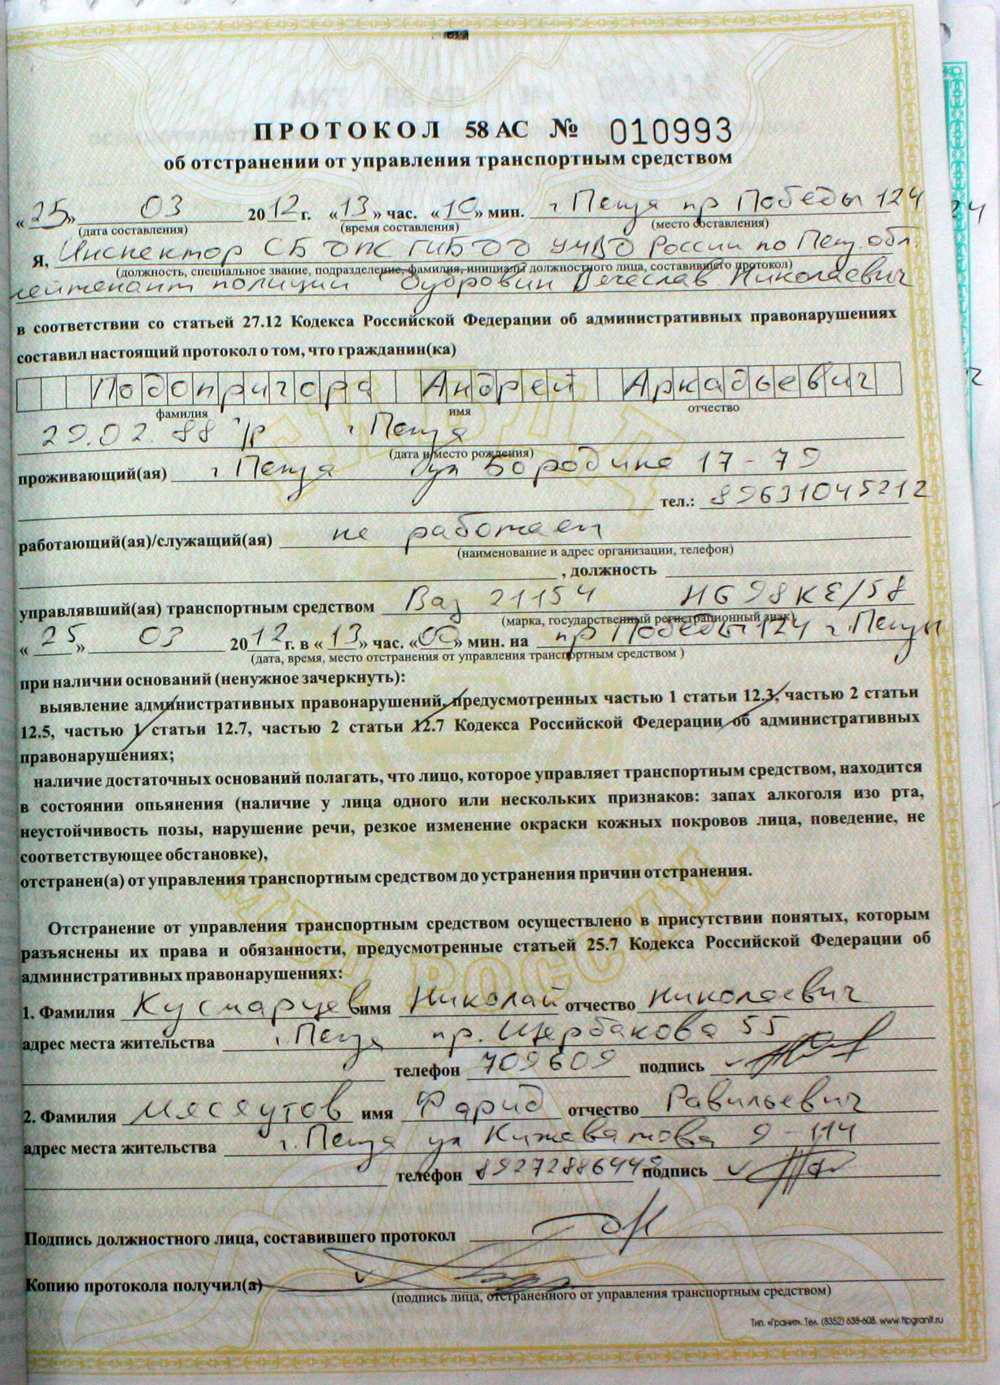 ПРОТОКОЛ 58 АС № 010993
об отстранении от управления транспортным средством
«25» 03 2012 г. «13» час. «10» мин. г Пенза пр Победы 124
(дата составления) (время составления) (место составления)
Я, Инспектор СБ ДПС ГИБДД УМВД России по Пенз. обл
(должность, специальное звание, подразделение, фамилия, инициалы должностного лица, составившего протокол)
лейтенант полиции Вячеслав Николаевич
в соответствии со статьей 27.12 Кодекса Российской Федерации об административных правонарушениях
составил настоящий протокол о том, что гражданин(ка)
Подопригора Андрей Аркадьевич
фамилия имя отчество
29.02.88 г/р г Пенза
(дата и место рождения)
проживающий(ая) г Пенза ул Бородина 17-79
тел.: 89631045212
работающий(ая)/служащий(ая) не работает
(наименование и адрес организации, телефон)
, должность
управлявший(ая) транспортным средством Ваз 21154 Н698КЕ/58
(марка, государственный регистрационный знак)
«25» 03 2012 г. в «13» час. «00» мин. на пр Победы 124 г. Пензы
(дата, время, место отстранения от управления транспортным средством )
при наличии оснований (ненужное зачеркнуть):
выявление административных правонарушений, предусмотренных частью 1 статьи 12.3, частью 2 статьи
12.5, частью 1 статьи 12.7, частью 2 статьи 12.7 Кодекса Российской Федерации об административных
правонарушениях;
наличие достаточных оснований полагать, что лицо, которое управляет транспортным средством, находится
в состоянии опьянения (наличие у лица одного или нескольких признаков: запах алкоголя изо рта,
неустойчивость позы, нарушение речи, резкое изменение окраски кожных покровов лица, поведение, не
соответствующее обстановке),
отстранен(а) от управления транспортным средством до устранения причин отстранения.
Отстранение от управления транспортным средством осуществлено в присутствии понятых, которым
разъяснены их права и обязанности, предусмотренные статьей 25.7 Кодекса Российской Федерации об
административных правонарушениях:
1. Фамилия Кусмарцев имя Николай отчество Николаевич
адрес места жительства г. Пенза пр. Щербакова 55
телефон 709609 подпись
2. Фамилия Мясеутов имя Фарид отчество Равильевич
адрес места жительства г. Пенза ул Кижеватова 9-114
телефон подпись
Подпись должностного лица, составившего протокол
Копию протокола получил(а)
(подпись лица, отстраненного от управления транспортным средством)
Тип. «Гранит». Тел. (8352) 638-608. www.tipgranit.ru